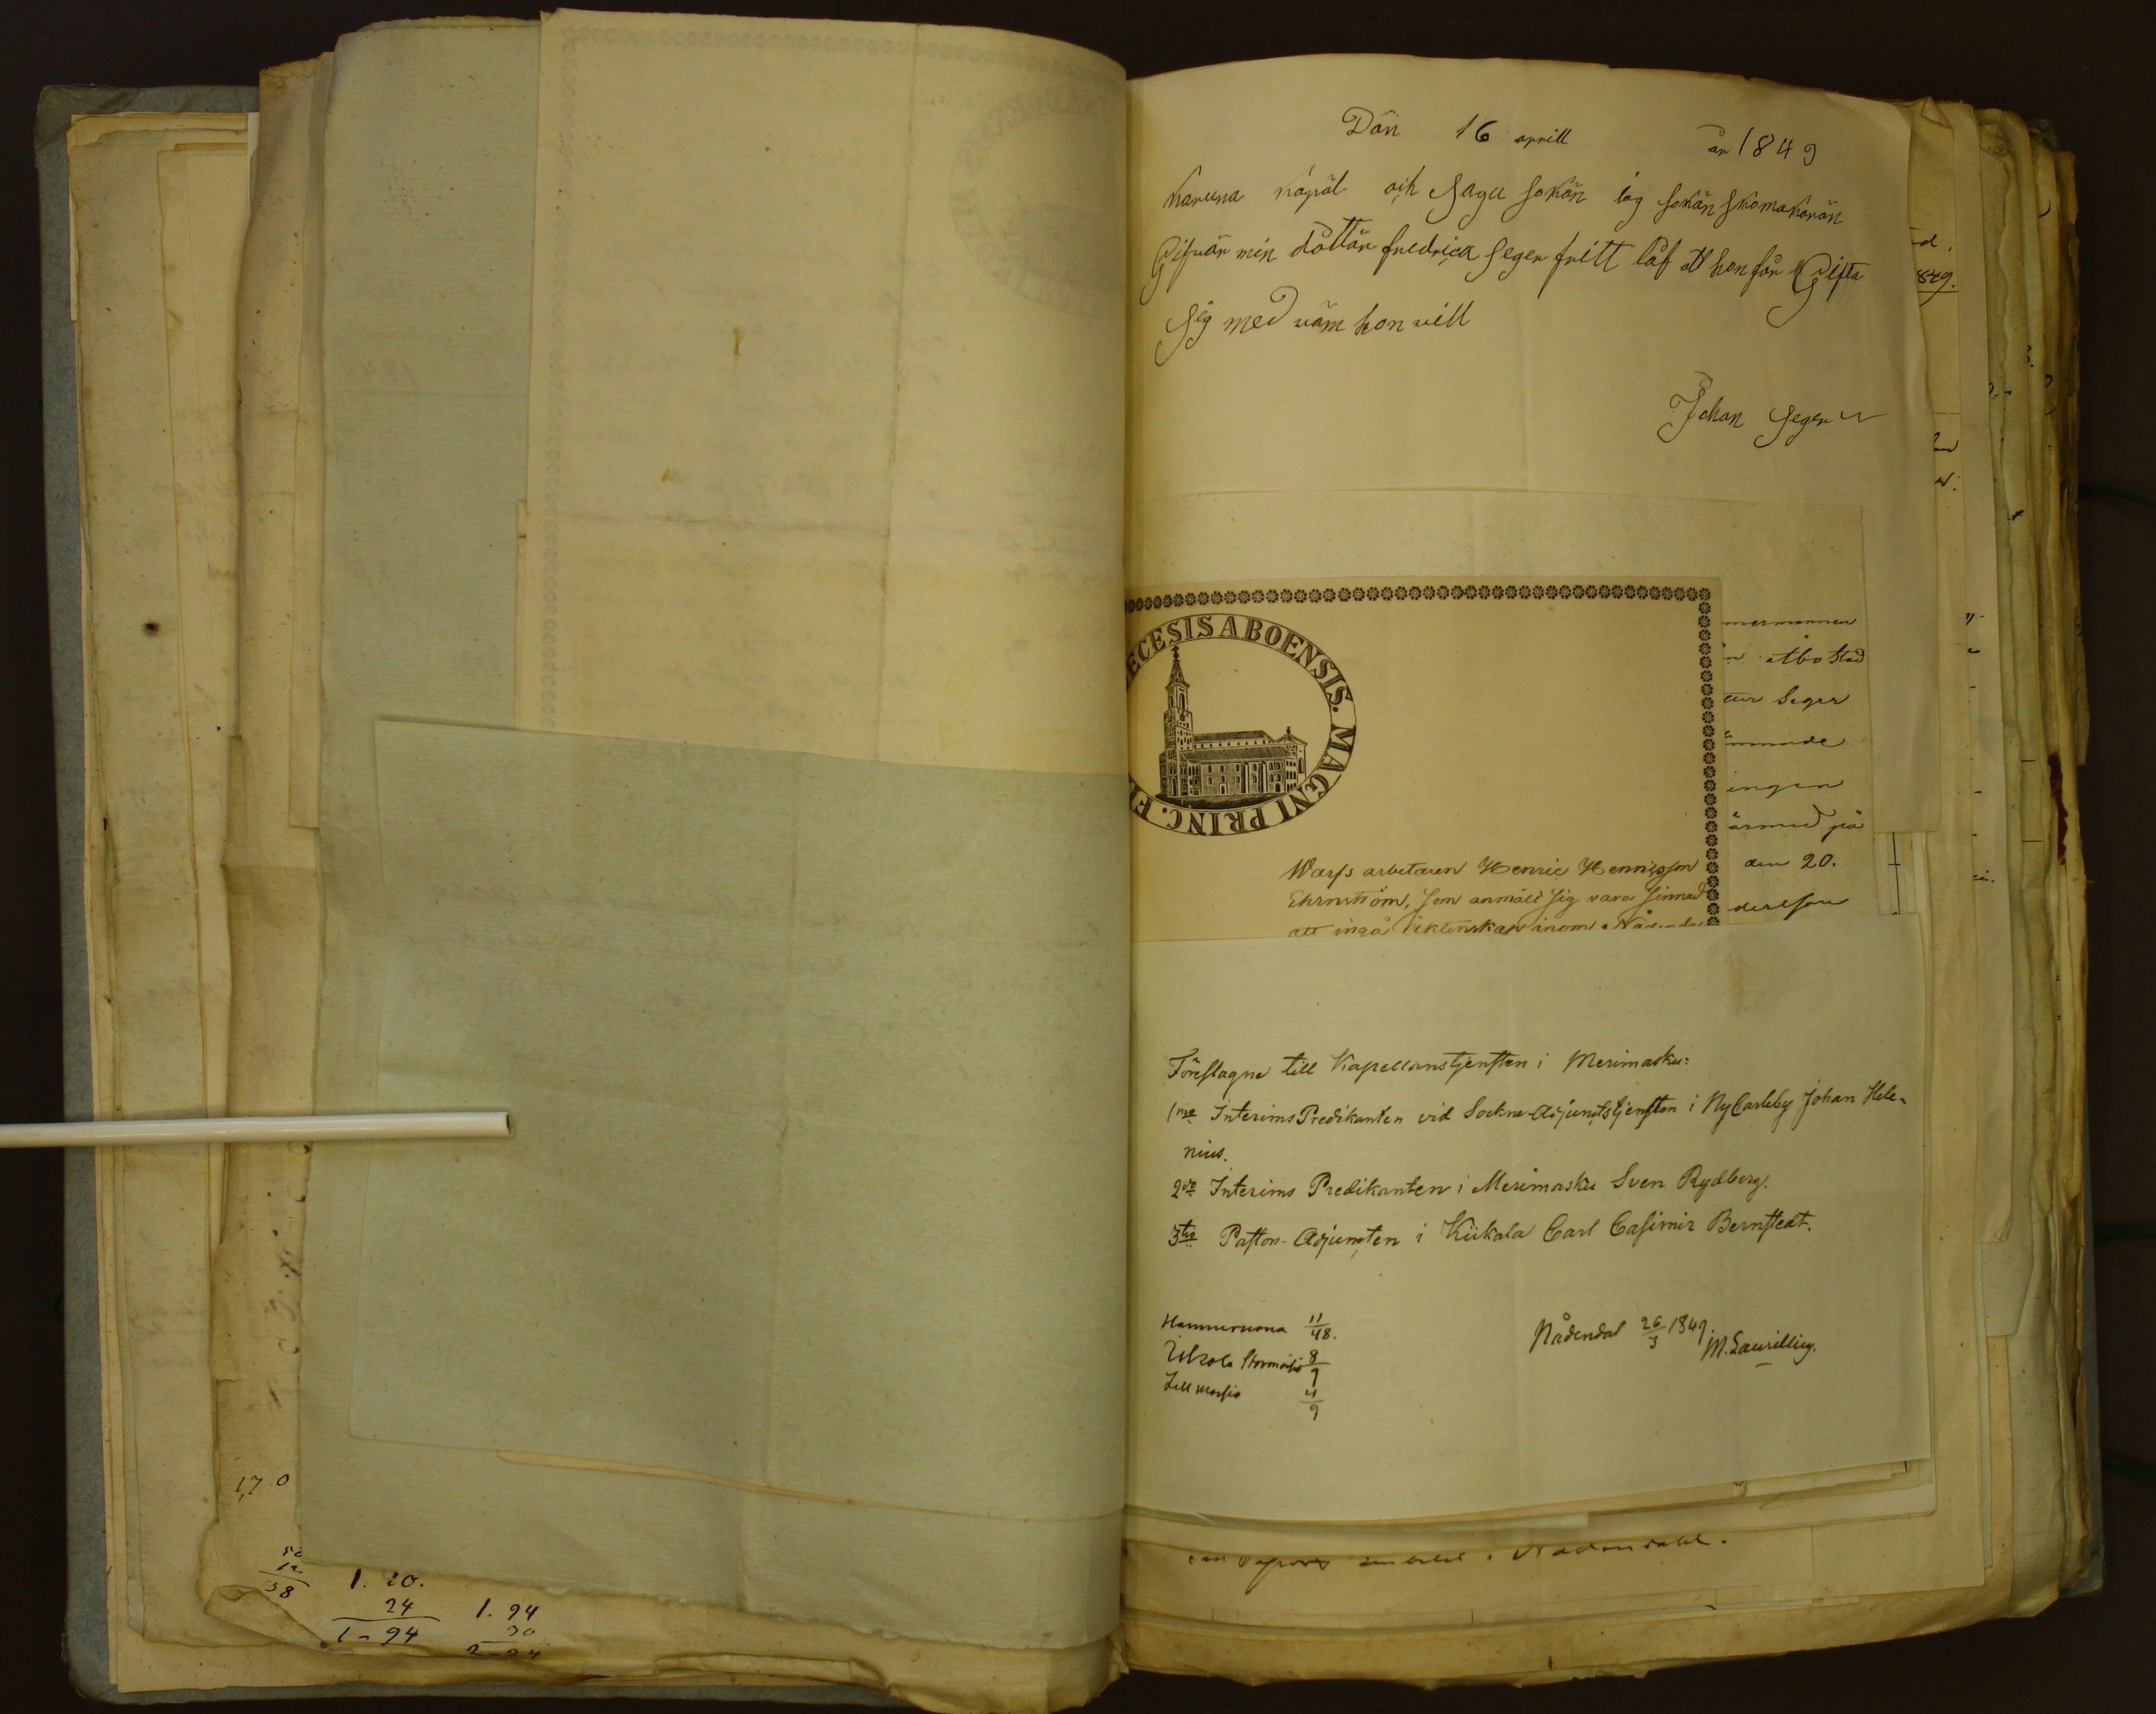 Dän 16 aprill år 1849
karuna kapäl och sagu sokän iag sokän skomakarän
Gifvär min dottär fredrica seger fritt låf att hon får Gifta
sig med väm hon vill
Johan seger
849.
ECESIS ABOENSIS. MAGNI PRINC. FI
Warfs arbetaren Henric Henricsson
Ehrnström, som anmält sig vara sinnad
att ingå äktenskap inom Nådendal
mermannen
Åbo Stad
Seger
ingen
ärmed på
den 20.
derson
Föreslagne till Kapellanstjensten i Merimasku:
1mo Interims Predikanten vid Sockne-Adjunctstjensten i NyCarleby Johan Hele-
nius.
2do Interims Predikanten i Merimasku Sven Rydberg.
3tio Pastors-Adjuncten i Kiikala Carl Casimir Bernstedt.
11/48.
8/9
4/9
Nådendal 26/3 1849.
M. Laurillius.
Nådendal.
1,7 0
12
38
1. 20.
24
1-94
1. 94
30
2-24